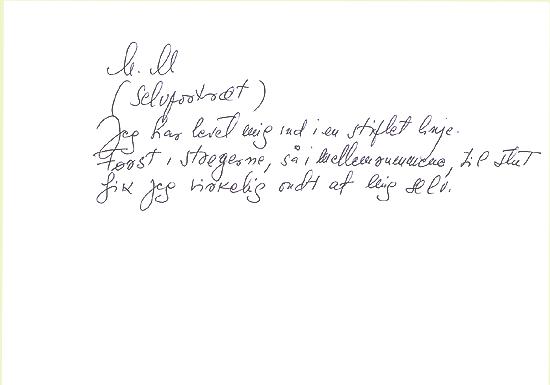 M. M
(Selvportræt)
Jeg har levet mig ind i en stiplet linje.
Først i stregerne, så i mellemrummene, til slut
fik jeg virkelig ondt af mig selv.